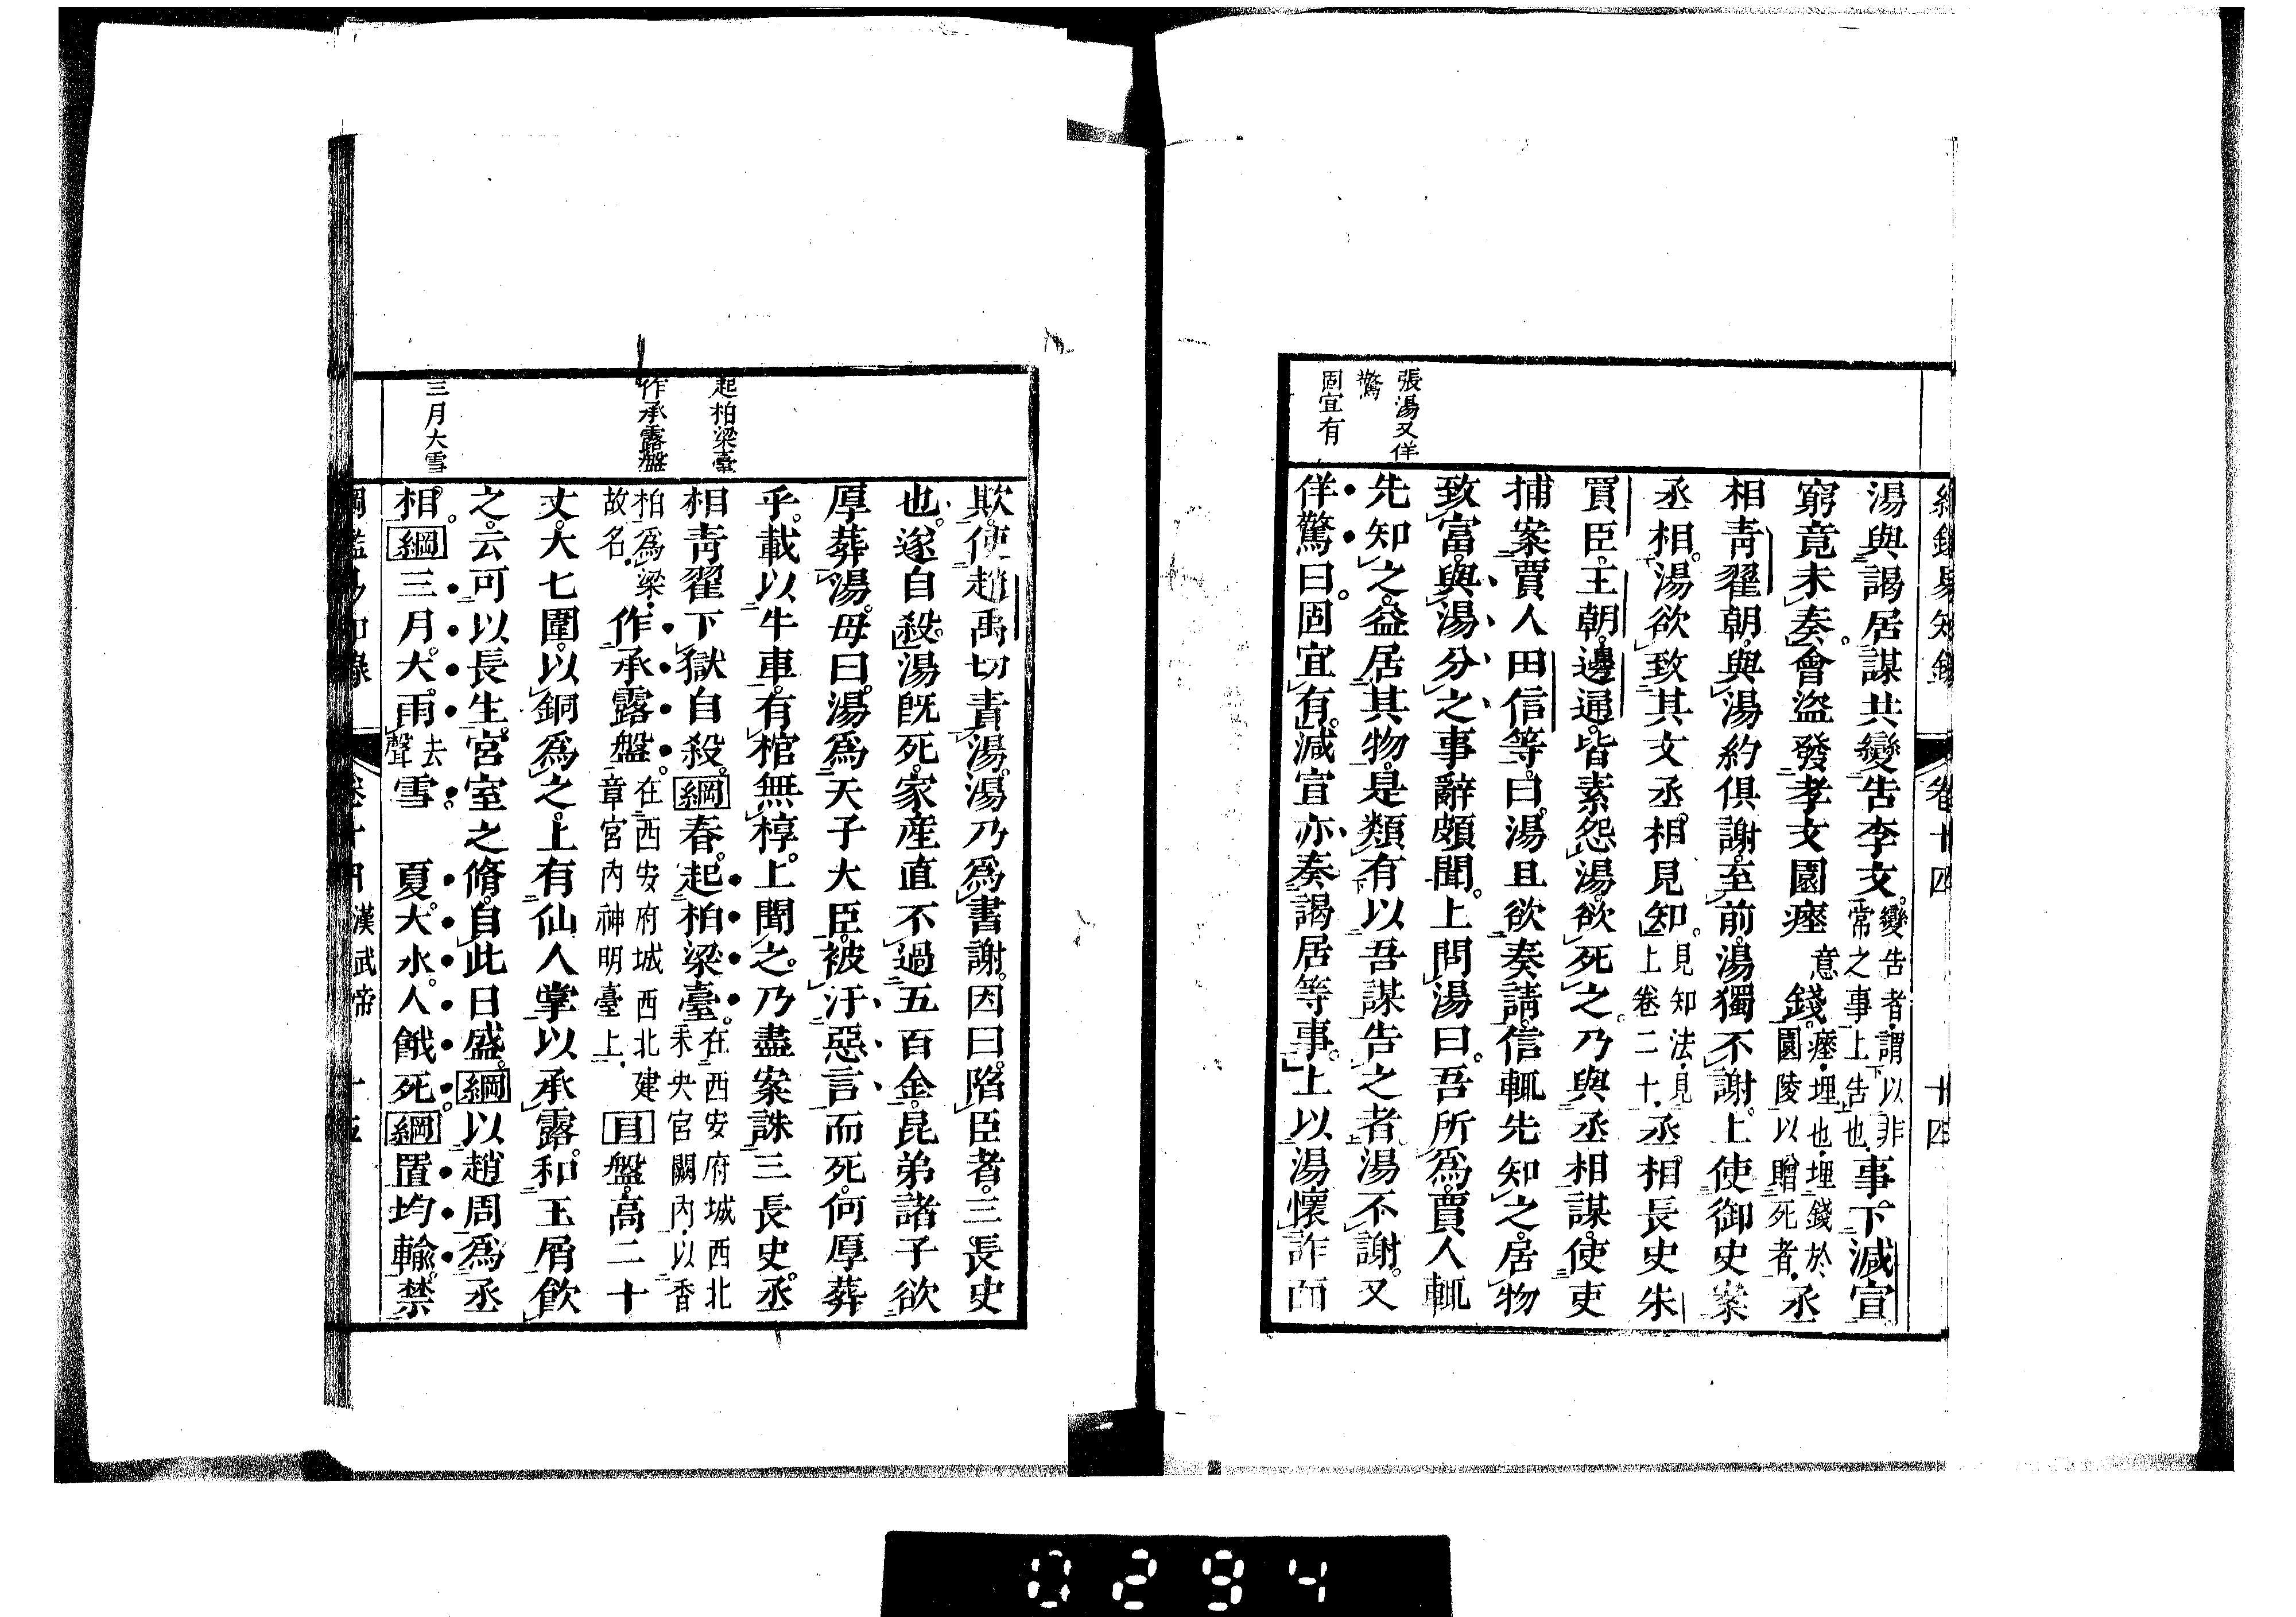 綱鑑易知錄 卷十四 十四
張湯又佯
驚
固宜有
湯與謁居謀共變告李文。變告者。謂以非常之事上告也。事。下減宣
窮竟未奏。會盜發孝文園瘞意錢。瘞。埋也。埋錢於園陵以贈死者。丞
相青翟朝。與湯約俱謝。至前。湯獨不謝。上使御史案
丞相。湯欲致其文丞相見知。見知法。見上卷二十。丞相長史朱
買臣。王朝。邊通。皆素怨湯。欲死之。乃與丞相謀。使吏
捕案賈人田信等。曰。湯且欲奏請。信輒先知之。居物
致富。與湯分之。事辭頗聞。上問湯曰。吾所為。賈人輒
先知之。益居其物。是類有以吾謀告之者。湯不謝。又
佯驚曰。固宜有。減宣亦奏謁居等事。上以湯懷詐面
欺。使趙禹切責湯。湯乃為書謝。因曰。陷臣者。三長史
也。遂自殺。湯既死。家產直不過五百金。昆弟諸子欲
厚葬湯。母曰。湯為天子大臣。被汙惡言而死。何厚葬
乎。載以牛車。有棺無椁。上聞之。乃盡案誅三長史。丞
相青翟下獄自殺。綱春。起柏梁臺。在西安府城西北未央宮闕內。以香
柏為梁。故名。作承露盤。在西安府城西北建章宮內神明臺上。目盤高二十
丈。大七圍。以銅為之。上有仙人掌以承露。和玉屑飲
之。云可以長生。宮室之脩。自此日盛。綱以趙周為丞
相。綱三月。大雨去聲雪 夏。大水。人餓死。綱置均輸。禁
起柏梁臺
作承露盤
三月大雪
綱鑑易知錄 卷十四 漢武帝 十五
0294